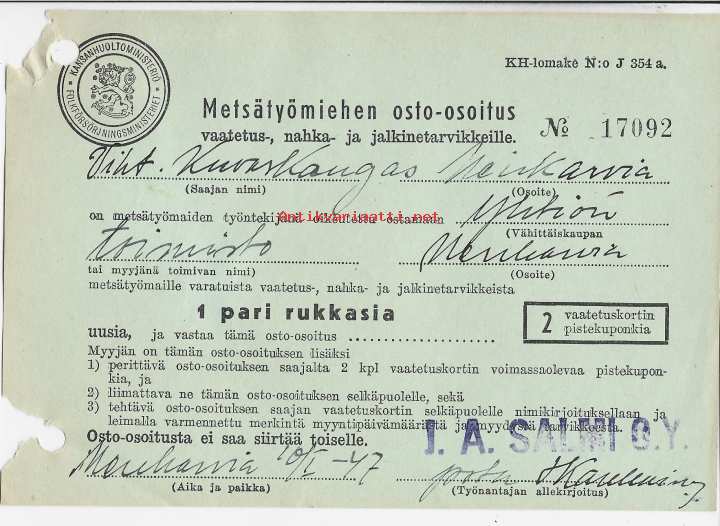 KANSANHUOLTOMINISTERIÖ
FOLKFÖRSÖRJNINGSMINISTERIET
KH-lomake N:o J 354 a.
Metsätyömiehen osto-osoitus
vaatetus-, nahka- ja jalkinetarvikkeille. № 17092
Viht. Kuvaskangas Merikarvia
(Saajan nimi) (Osoite)
on metsätyömaiden työntekijänä oikeutettu ostamaan Yhtiön
Antikvariaatti.net
(Vähittäiskaupan
toimisto Merikarvia
tai myyjänä toimivan nimi) (Osoite)
metsätyömaille varatuista vaatetus-, nahka- ja jalkinetarvikkeista
1 pari rukkasia
2 vaatetuskortin
pistekuponkia
uusia, ja vastaa tämä osto-osoitus
Myyjän on tämän osto-osoituksen lisäksi
1) perittävä osto-osoituksen saajalta 2 kpl vaatetuskortin voimassaolevaa pistekupon-
kia, ja
2) liimattava ne tämän osto-osoituksen selkäpuolelle, sekä
3) tehtävä osto-osoituksen saajan vaatetuskortin selkäpuolelle nimikirjoituksellaan ja
leimalla varmennettu merkintä myyntipäivämäärästä ja myydyistä tarvikkeista.
Osto-osoitusta ei saa siirtää toiselle.
J. A. SALMI O.Y.
Merikarvia 10/I -47
(Aika ja paikka) (Työnantajan allekirjoitus)